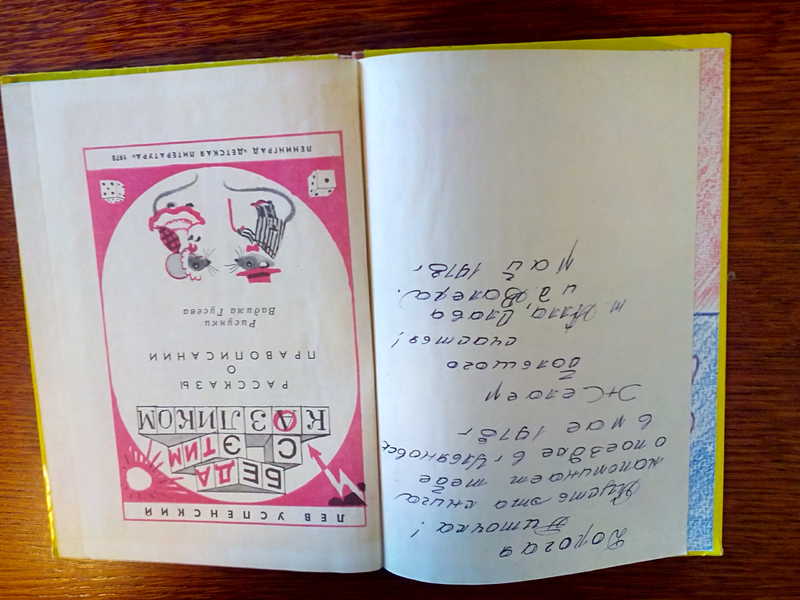 Дорогая
Пусть эта книга
напоминает тебе
о поездке в г Ульяновск
в мае 1978 г
Желаем
большого
счастья!
т Алла, Слава
и д Валера.
Май 1978 г
ЛЕВ УСПЕНСКИЙ
БЕДА
С ЭТИМ
КОЗЛИКОМ
РАССКАЗЫ
О
ПРАВОПИСАНИИ
Рисунки
Вадима Гусева
ЛЕНИНГРАД «ДЕТСКАЯ ЛИТЕРАТУРА»